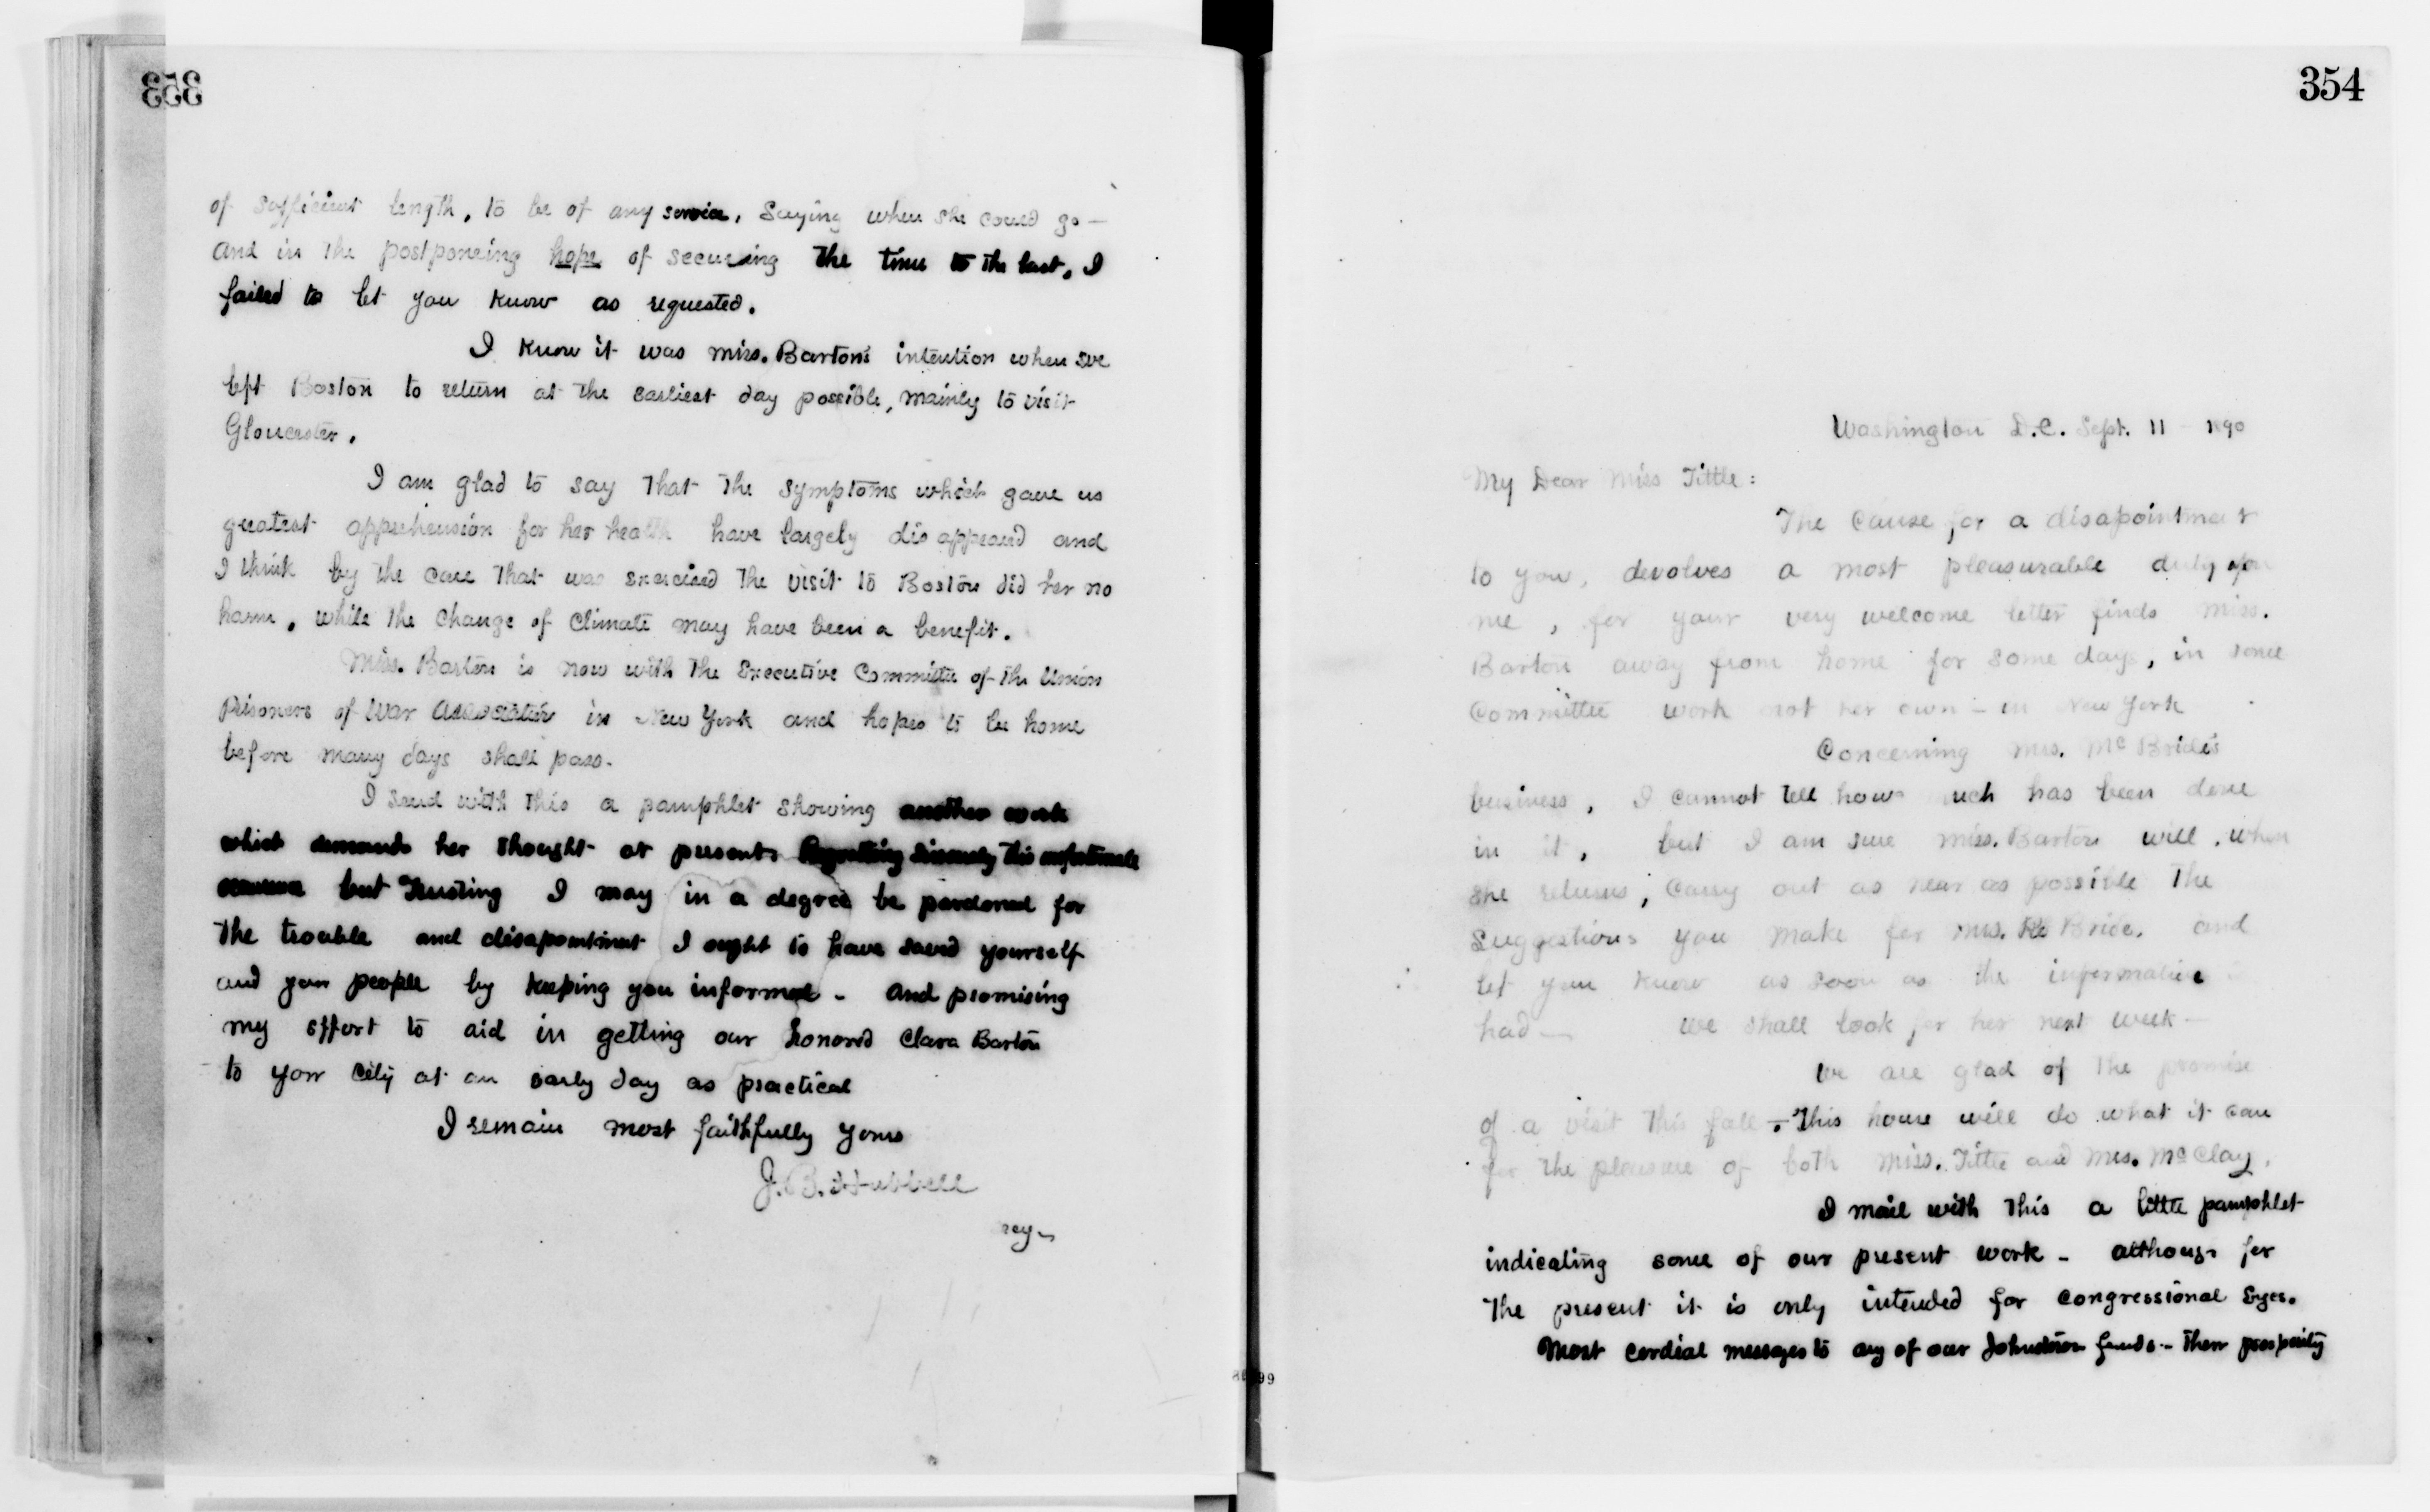 353
of sufficient length, to be of any service, saying when she could go —
and in the postponeing hope of secureing the time to the last, I
failed to let you know as requested.
I know it was miss. Barton's intention when we
left Boston to return at the earliest day possible, mainly to visit
Gloucester.
I am glad to say that the symptoms which gave us
greatest apprehension for her health have largely disappeared and
I think by the care that was exercised the visit to Boston did her no
harm, while the change of climate may have been a benefit.
Miss. Barton is now with the Executive Committee of the Union
Prisoners of War Association in New York and hopes to be home
before many days shall pass.
I send with this a pamphlet showing another work
which demands her thought at present. Regretting sincerely this unfortunate
but Trusting I may in a degree be pardoned for
the trouble and disapointment I ought to have saved yourself
and your people by keeping you informed - and promising
my effort to aid in getting our honored Clara Barton
to your city at an early day as practical
I remain most faithfully yours
J. B. Hubbell
354
Washington D.C. Sept. 11 - 1890
My Dear Miss Tittle:
The cause for a disapointment
to you, devolves a most pleasurable duty upon
me, for your very welcome letter finds miss.
Barton away from home for some days, in some
Committee work not her own - in New York
Concerning mrs. McBride's
business, I cannot tell how much has been done
in it, but I am sure miss. Barton will, when
she returns, carry out as near as possible the
suggestions you make for mrs. McBride. and
let you know as soon as the information is
had — We shall look for her next week -
We are glad of the promise
of a visit this fall -. This house will do what it can
for the pleasure of both miss. Tittle and mrs. McClay.
I mail with this a little pamphlet
indicating some of our present work - although for
the present it is only intended for congressional Eyes.
Most cordial messages to any of our Johnstown friends - their prosperity